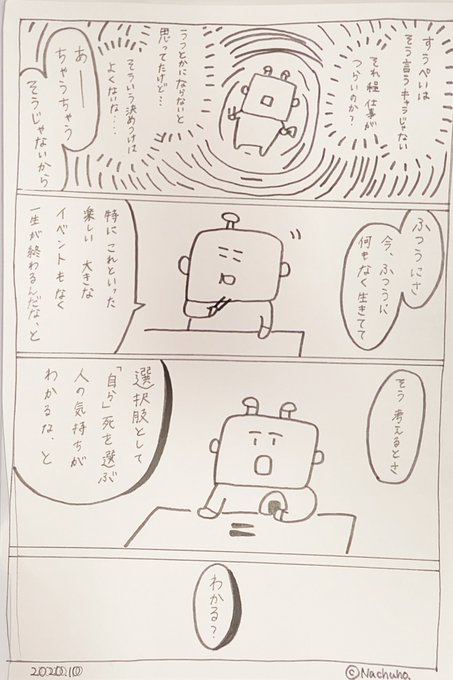 すうぺいは
そう言うキャラじゃない
それ程 仕事が
つらいのか？
うつとかにならないと
思ってたけど…
そういう決めつけは
よくないな…
あーー
ちゃうちゃう
そうじゃないから
ふつうにさ
今、ふつうに
何もなく生きてて
特にこれといった
楽しい 大きな
イベントもなく
一生が終わるんだな、と
そう 考えるとさ
選択肢として
「自分」死を選ぶ
人の気持ちが
わかるな、と
わかる？
2020.10
©Nachuho.